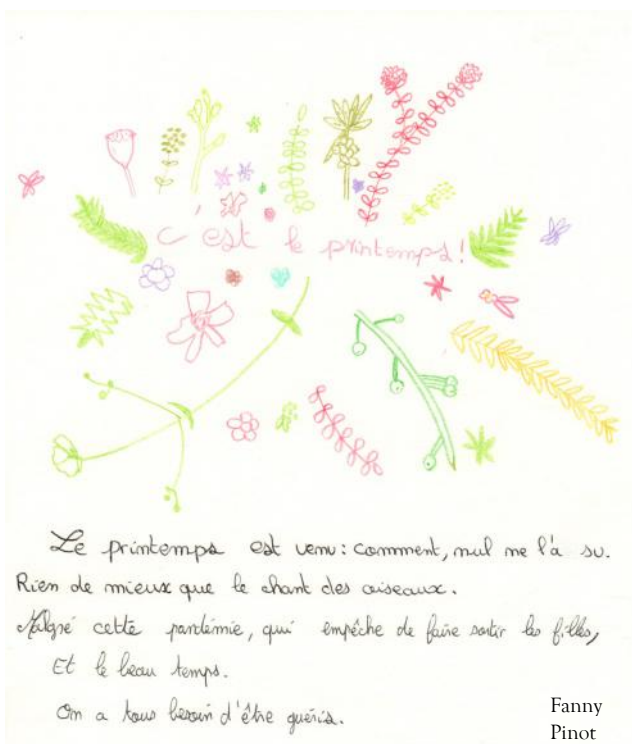 C'est le printemps!
Le printemps est venu: comment, nul ne l'a su.
Rien de mieux que le chant des oiseaux.
Malgré cette pandémie, qui empêche de faire sortir les filles,
Et le beau temps.
On a tous besoin d'être guéris.
Fanny
Pinot